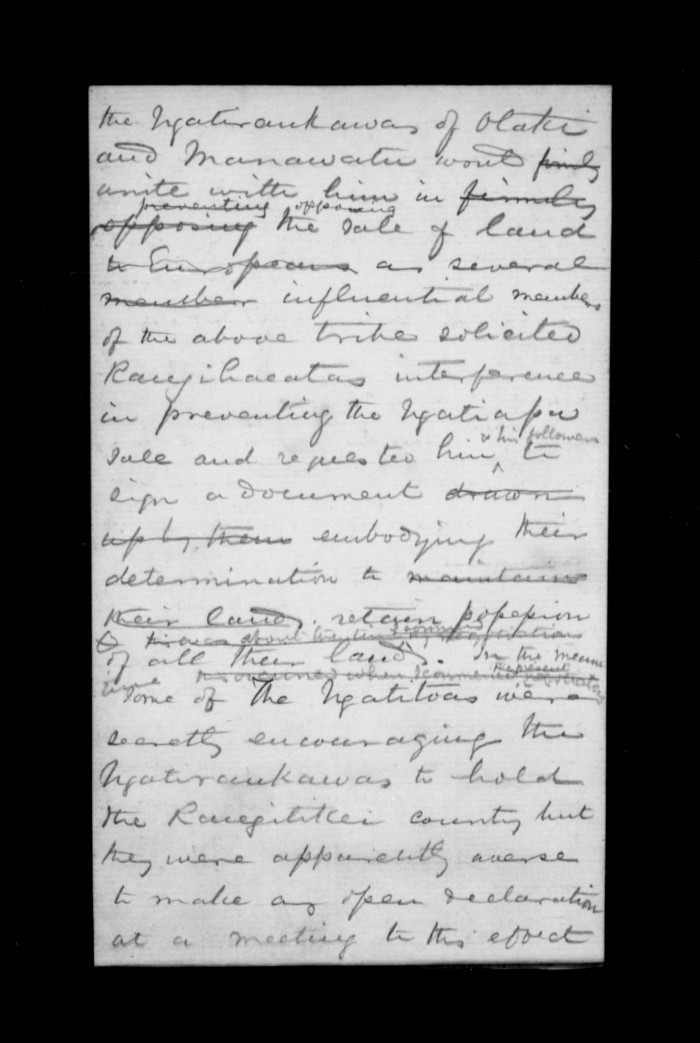 the Ngatiraukawas of Otaki
and Manawatu would firmly
unite with him in firmly
preventing opposing
opposing the sale of land
to Europeans as several
member influential members
of the above tribe solicited
Rangihaeatas interference
in preventing the Ngatiapa
& his followers
sale and requested him to
sign a document drawn
up by them embodying their
determination to maintain
their lands. retain possession
of all their lands. In the mean
time
Some of the Ngatitoas were
secretly encouraging the
Ngatiraukawas to hold
the Rangitikei country but
they were apparently averse
to make any open declaration
at a meeting to this effect